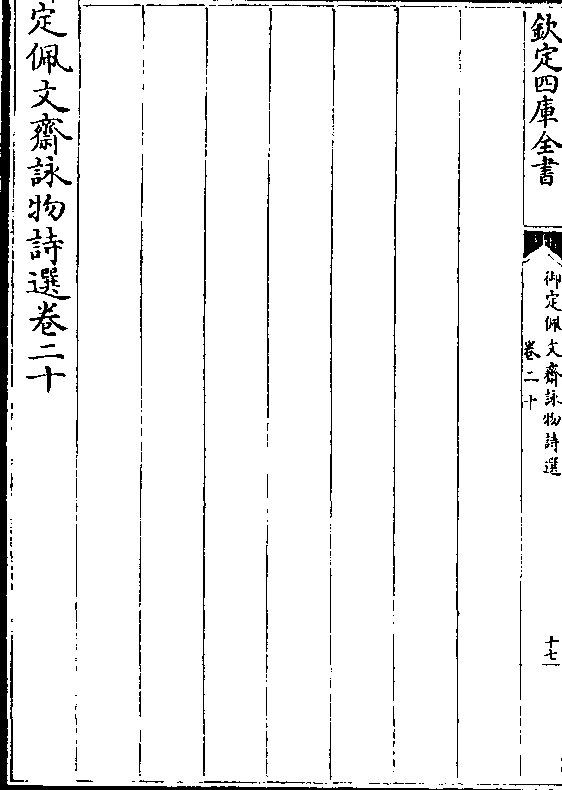 欽定四庫全書
御定佩文齋詠物詩選
卷二十
十七
定佩文齋詠物詩選卷二十